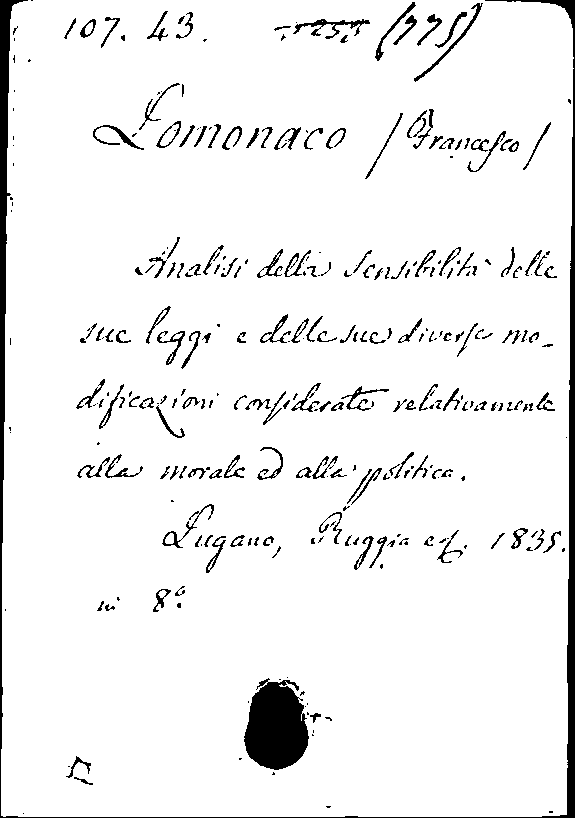 107. 43. (775)
Lomonaco / Francesco /
Analisi della sensibilità delle
sue leggi e delle sue diverse mo-
dificazioni considerate relativamente
alla morale ed alla politica.
Lugano, Ruggia e C. 1835.
in 8°